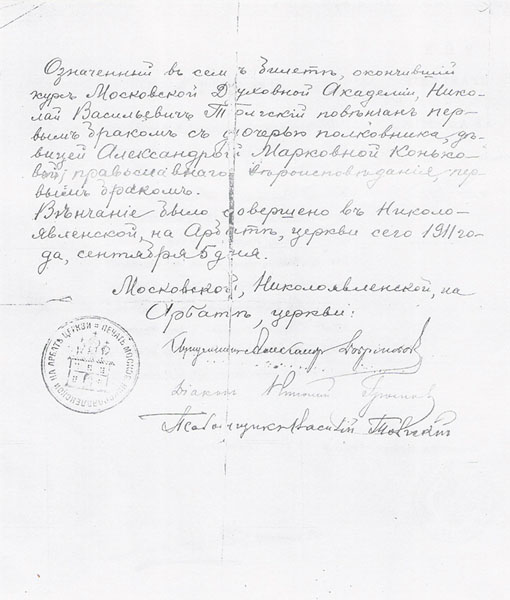 Означенный въ семъ билетѣ, окончившій
курсъ Московской Духовной Академіи, Нико-
лай Васильевичъ Толгскій повѣнчан пер-
вымъ бракомъ съ дочерью полковника, дѣ-
вицей Александрой Марковной Конько-
вой, православнаго вѣроисповѣданія, пер-
вымъ бракомъ.
Вѣнчаніе было совершено въ Николо-
явленской, на Арбатѣ, церкви сего 1911 го-
да, сентября 5 дня.
Московской, Николоявленской, на
Арбатѣ, церкви:
Александръ
Діаконъ
Василій Толгскій
ПЕЧАТЬ МОСКОВ. НИКОЛОЯВЛЕНСКОЙ НА АРБАТѢ ЦЕРКВИ